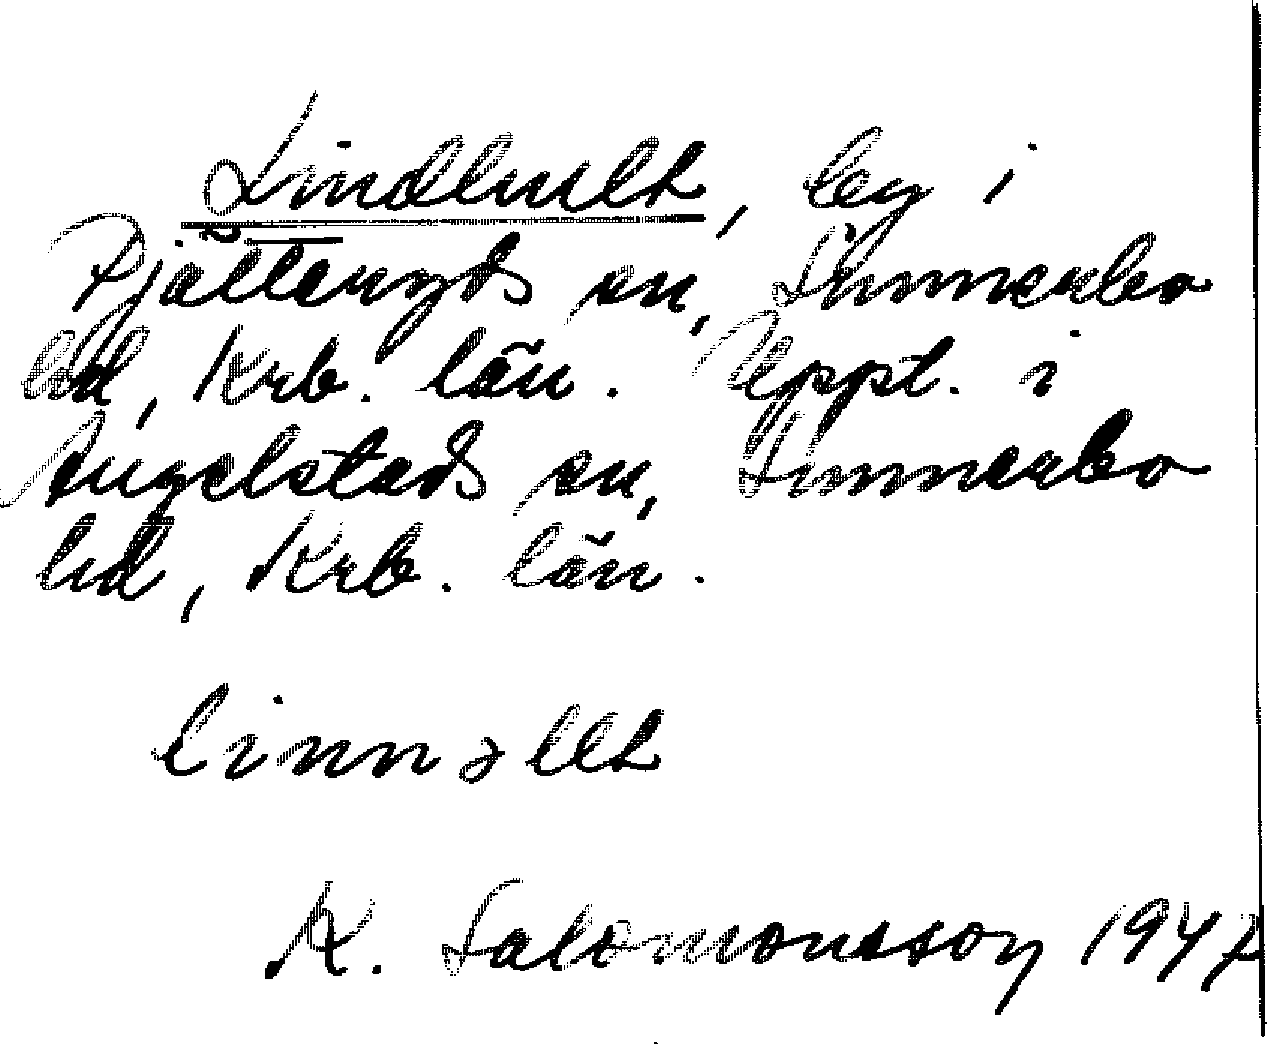 Lindhult, by i
Pjätteryds sn, Sunnerbo
hd, Krb. län. Uppt. i
Angelstads sn, Sunnerbo
hd, Krb. län.
linnəllt
K. Salomonsson 1947